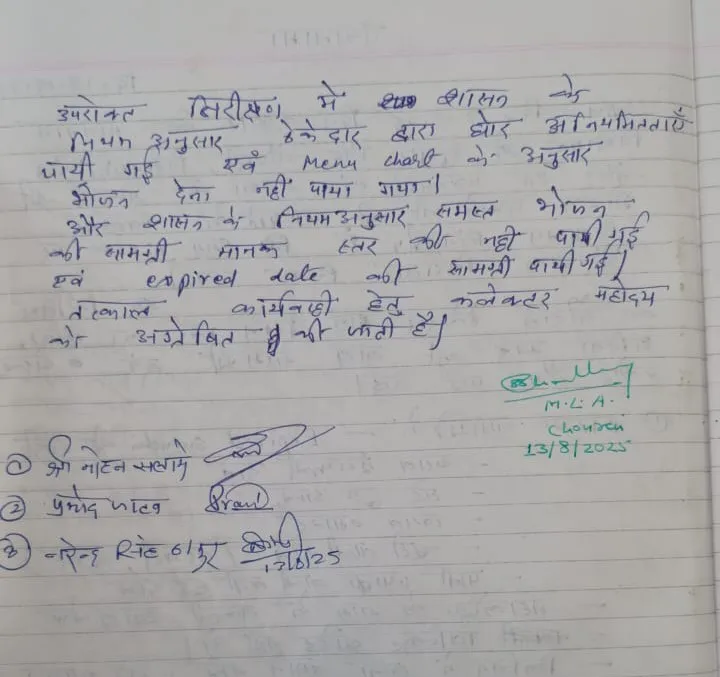 उपरोक्त निरीक्षण में शासन के
नियम अनुसार ठेकेदार द्वारा घोर अनियमितताएँ
पायी गई एवं Menu chart के अनुसार
भोजन देना नहीं पाया गया।
और शासन के नियम अनुसार समस्त भोजन
की सामग्री मानक स्तर की नहीं पायी गई
एवं expired date की सामग्री पायी गई।
तत्काल कार्यवाही हेतु कलेक्टर महोदय
को अग्रेषित की जाती है।
M.L.A.
Chourai
13/8/2025
① श्री मोहन सलामे
② प्रमोद
③ नरेन्द्र सिंह
13/8/25